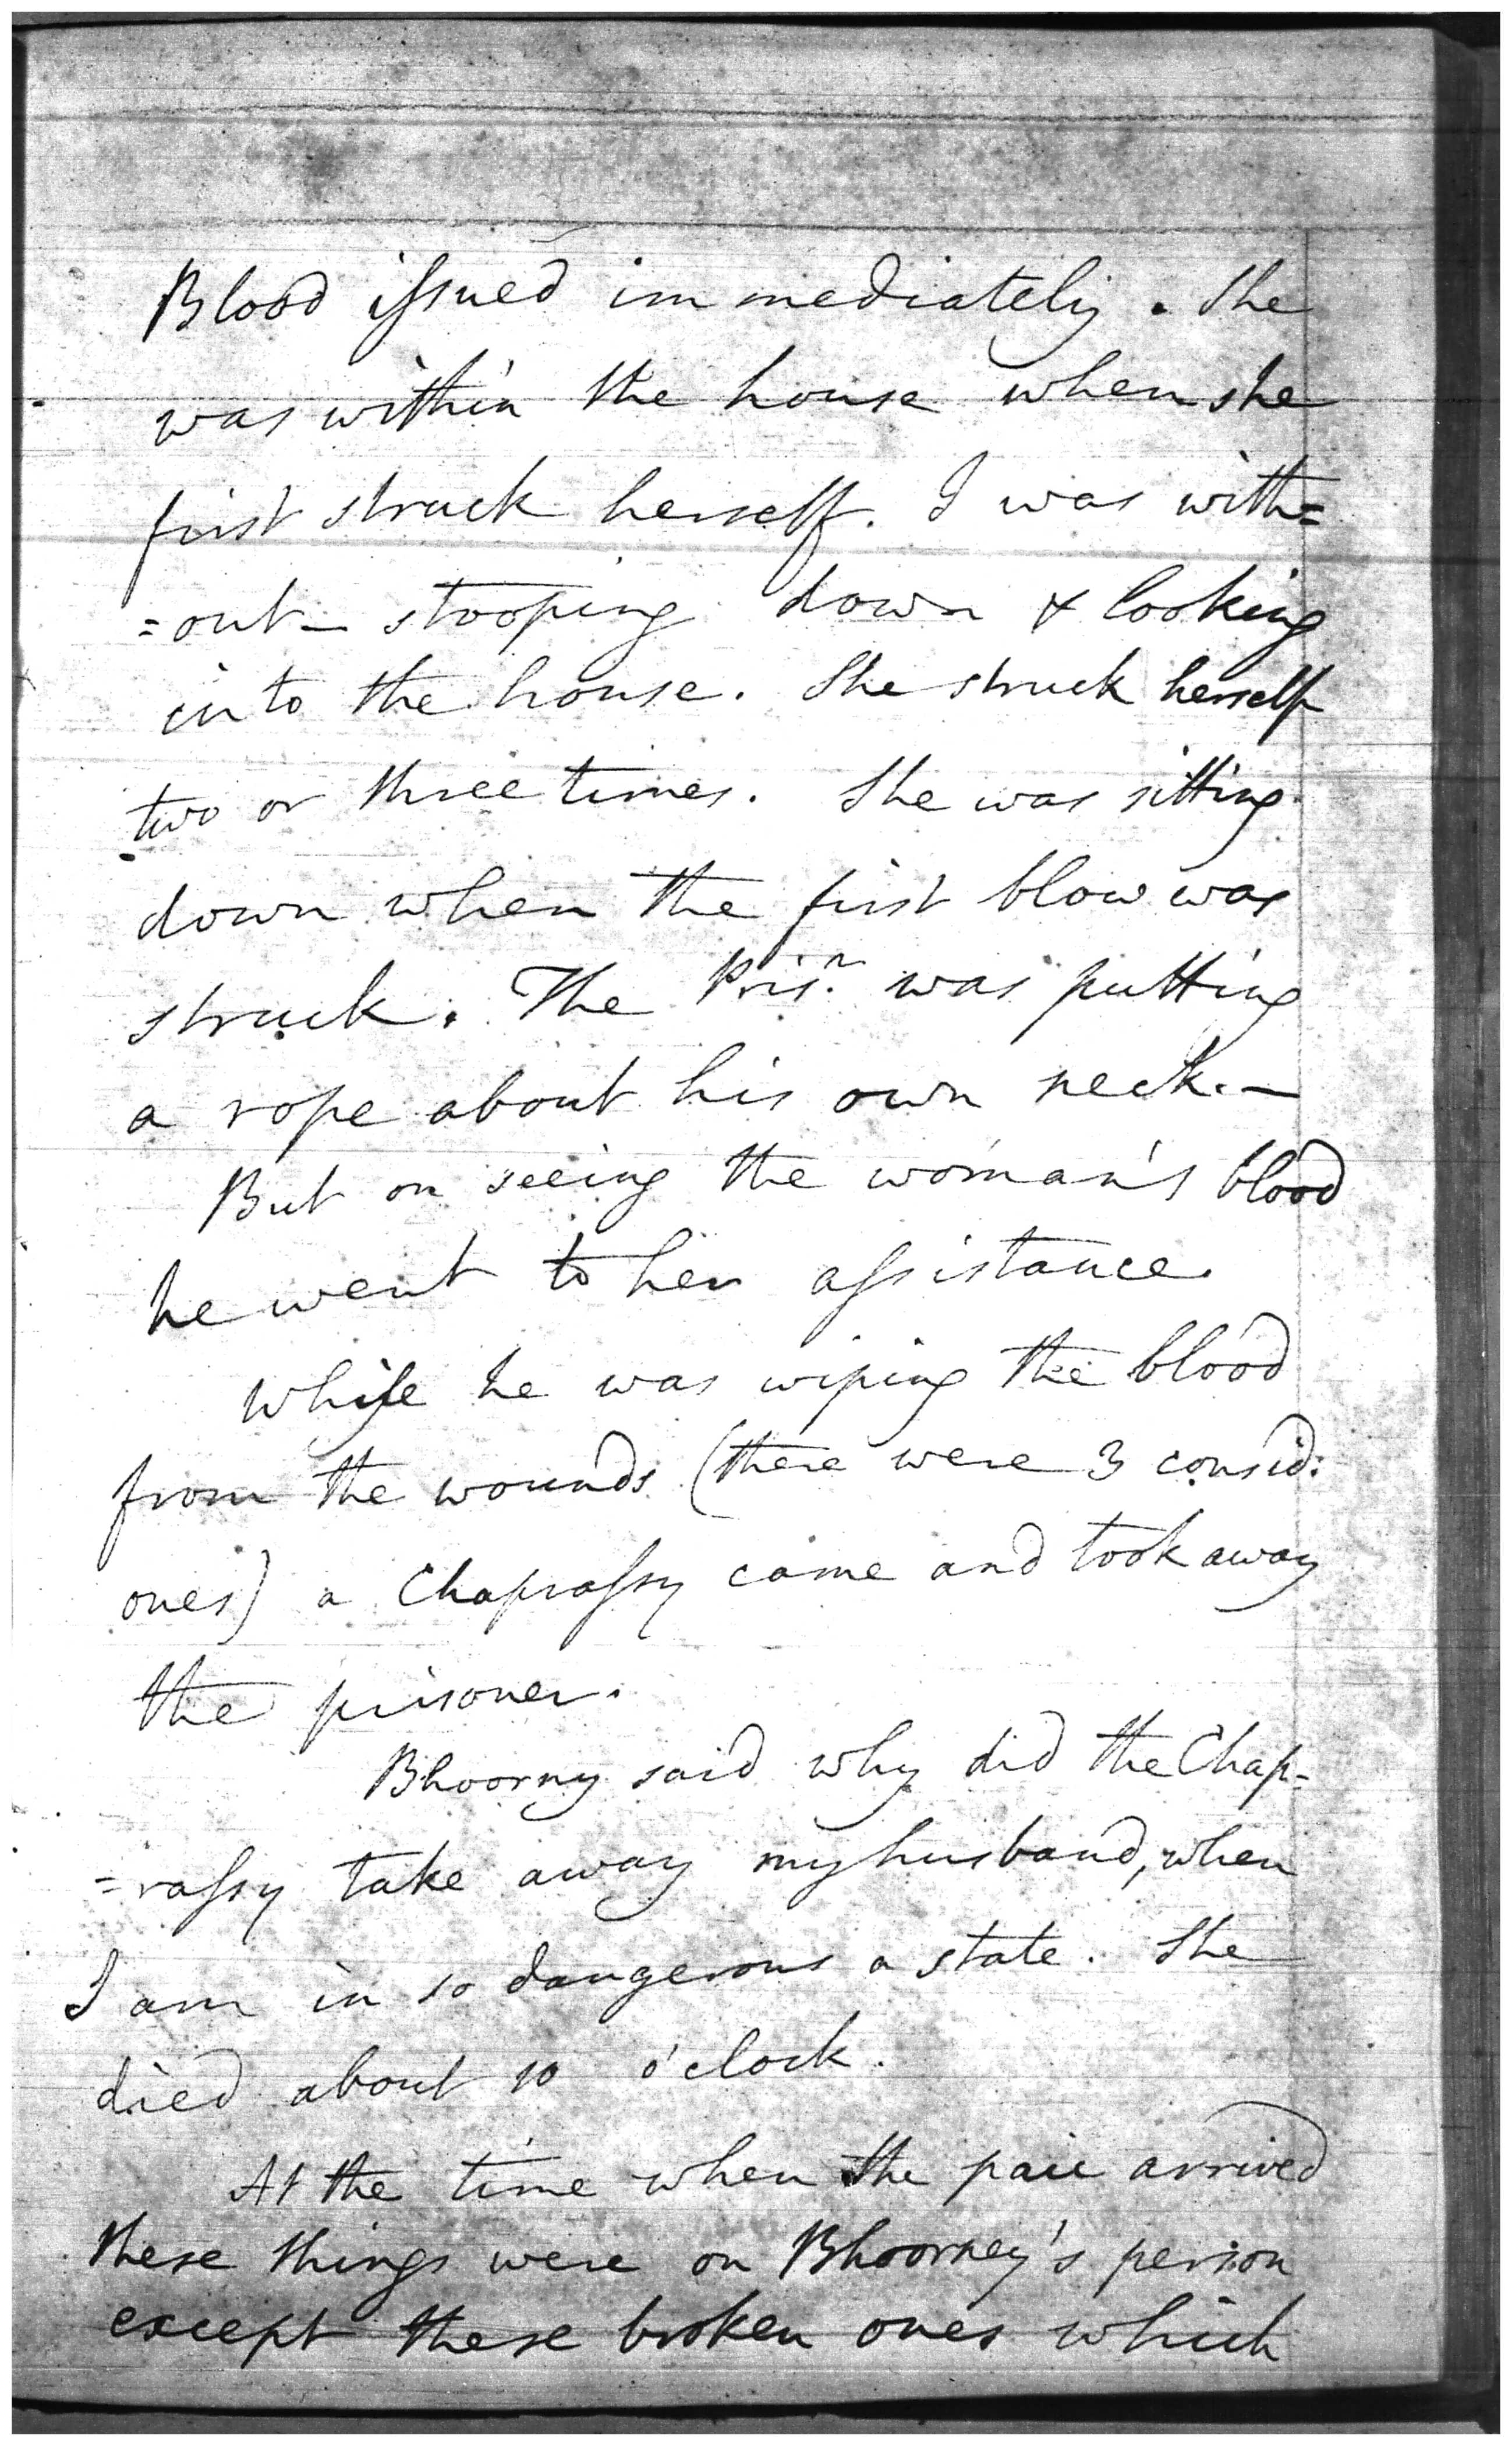 Blood iſsued immediately. She
was within the house when she
first struck herself. I was with=
=out – stooping down & looking
into the house. She struck herself
two or three times. She was sitting
down when the first blow was
struck. The Pris.n was putting
a rope about his own neck. –
But on seeing the woman's blood
he went to her aſsistance.
While he was wiping the blood
from the wounds (there were 3 consid:
ones) a Chapraſsy came and took away
the prisoner.
Bhoorny said why did the Chap-
=raſsy take away my husband, when
I am in so dangerous a state. She
died about 10 o'clock.
At the time when the pair arrived
these things were on Bhoorney's person
except these broken ones which